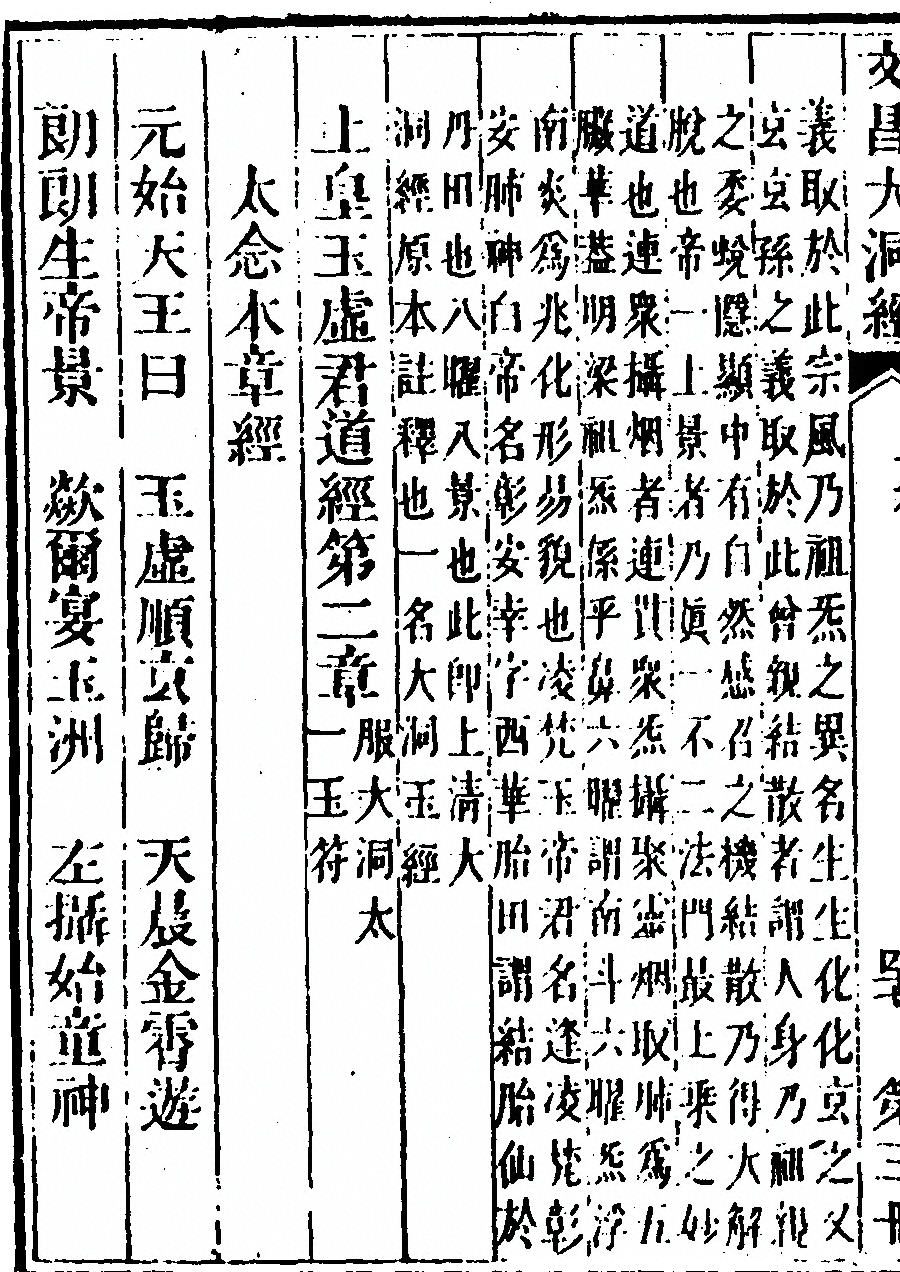 文昌大洞經
第三冊
義取於此宗風乃祖炁之異名生生化化玄之又
玄玄孫之義取於此曾親結散者謂人身乃祖親
之委蛻隱顯中有自然感召之機結散乃得大解
脫也帝一上景者乃眞一不二法門最上乘之妙
道也連衆攝烟者連貫衆炁攝聚靈烟取肺爲五
臟華蓋明梁祖炁係乎鼻六曜謂南斗六曜炁浮
南炎爲兆化形易貌也凌梵玉帝君名逢凌梵彰
安肺神白帝名彰安幸字西華胎田謂結胎仙於
丹田也八曜入景也此卽上淸大
洞經原本註釋也一名大洞玉經
上皇玉虛君道經第二章
服大洞太
一玉符
太念本章經
元始天王曰 玉虛順玄歸 天晨金霄遊
朗朗生帝景 歘爾宴玉洲 左攝始童神